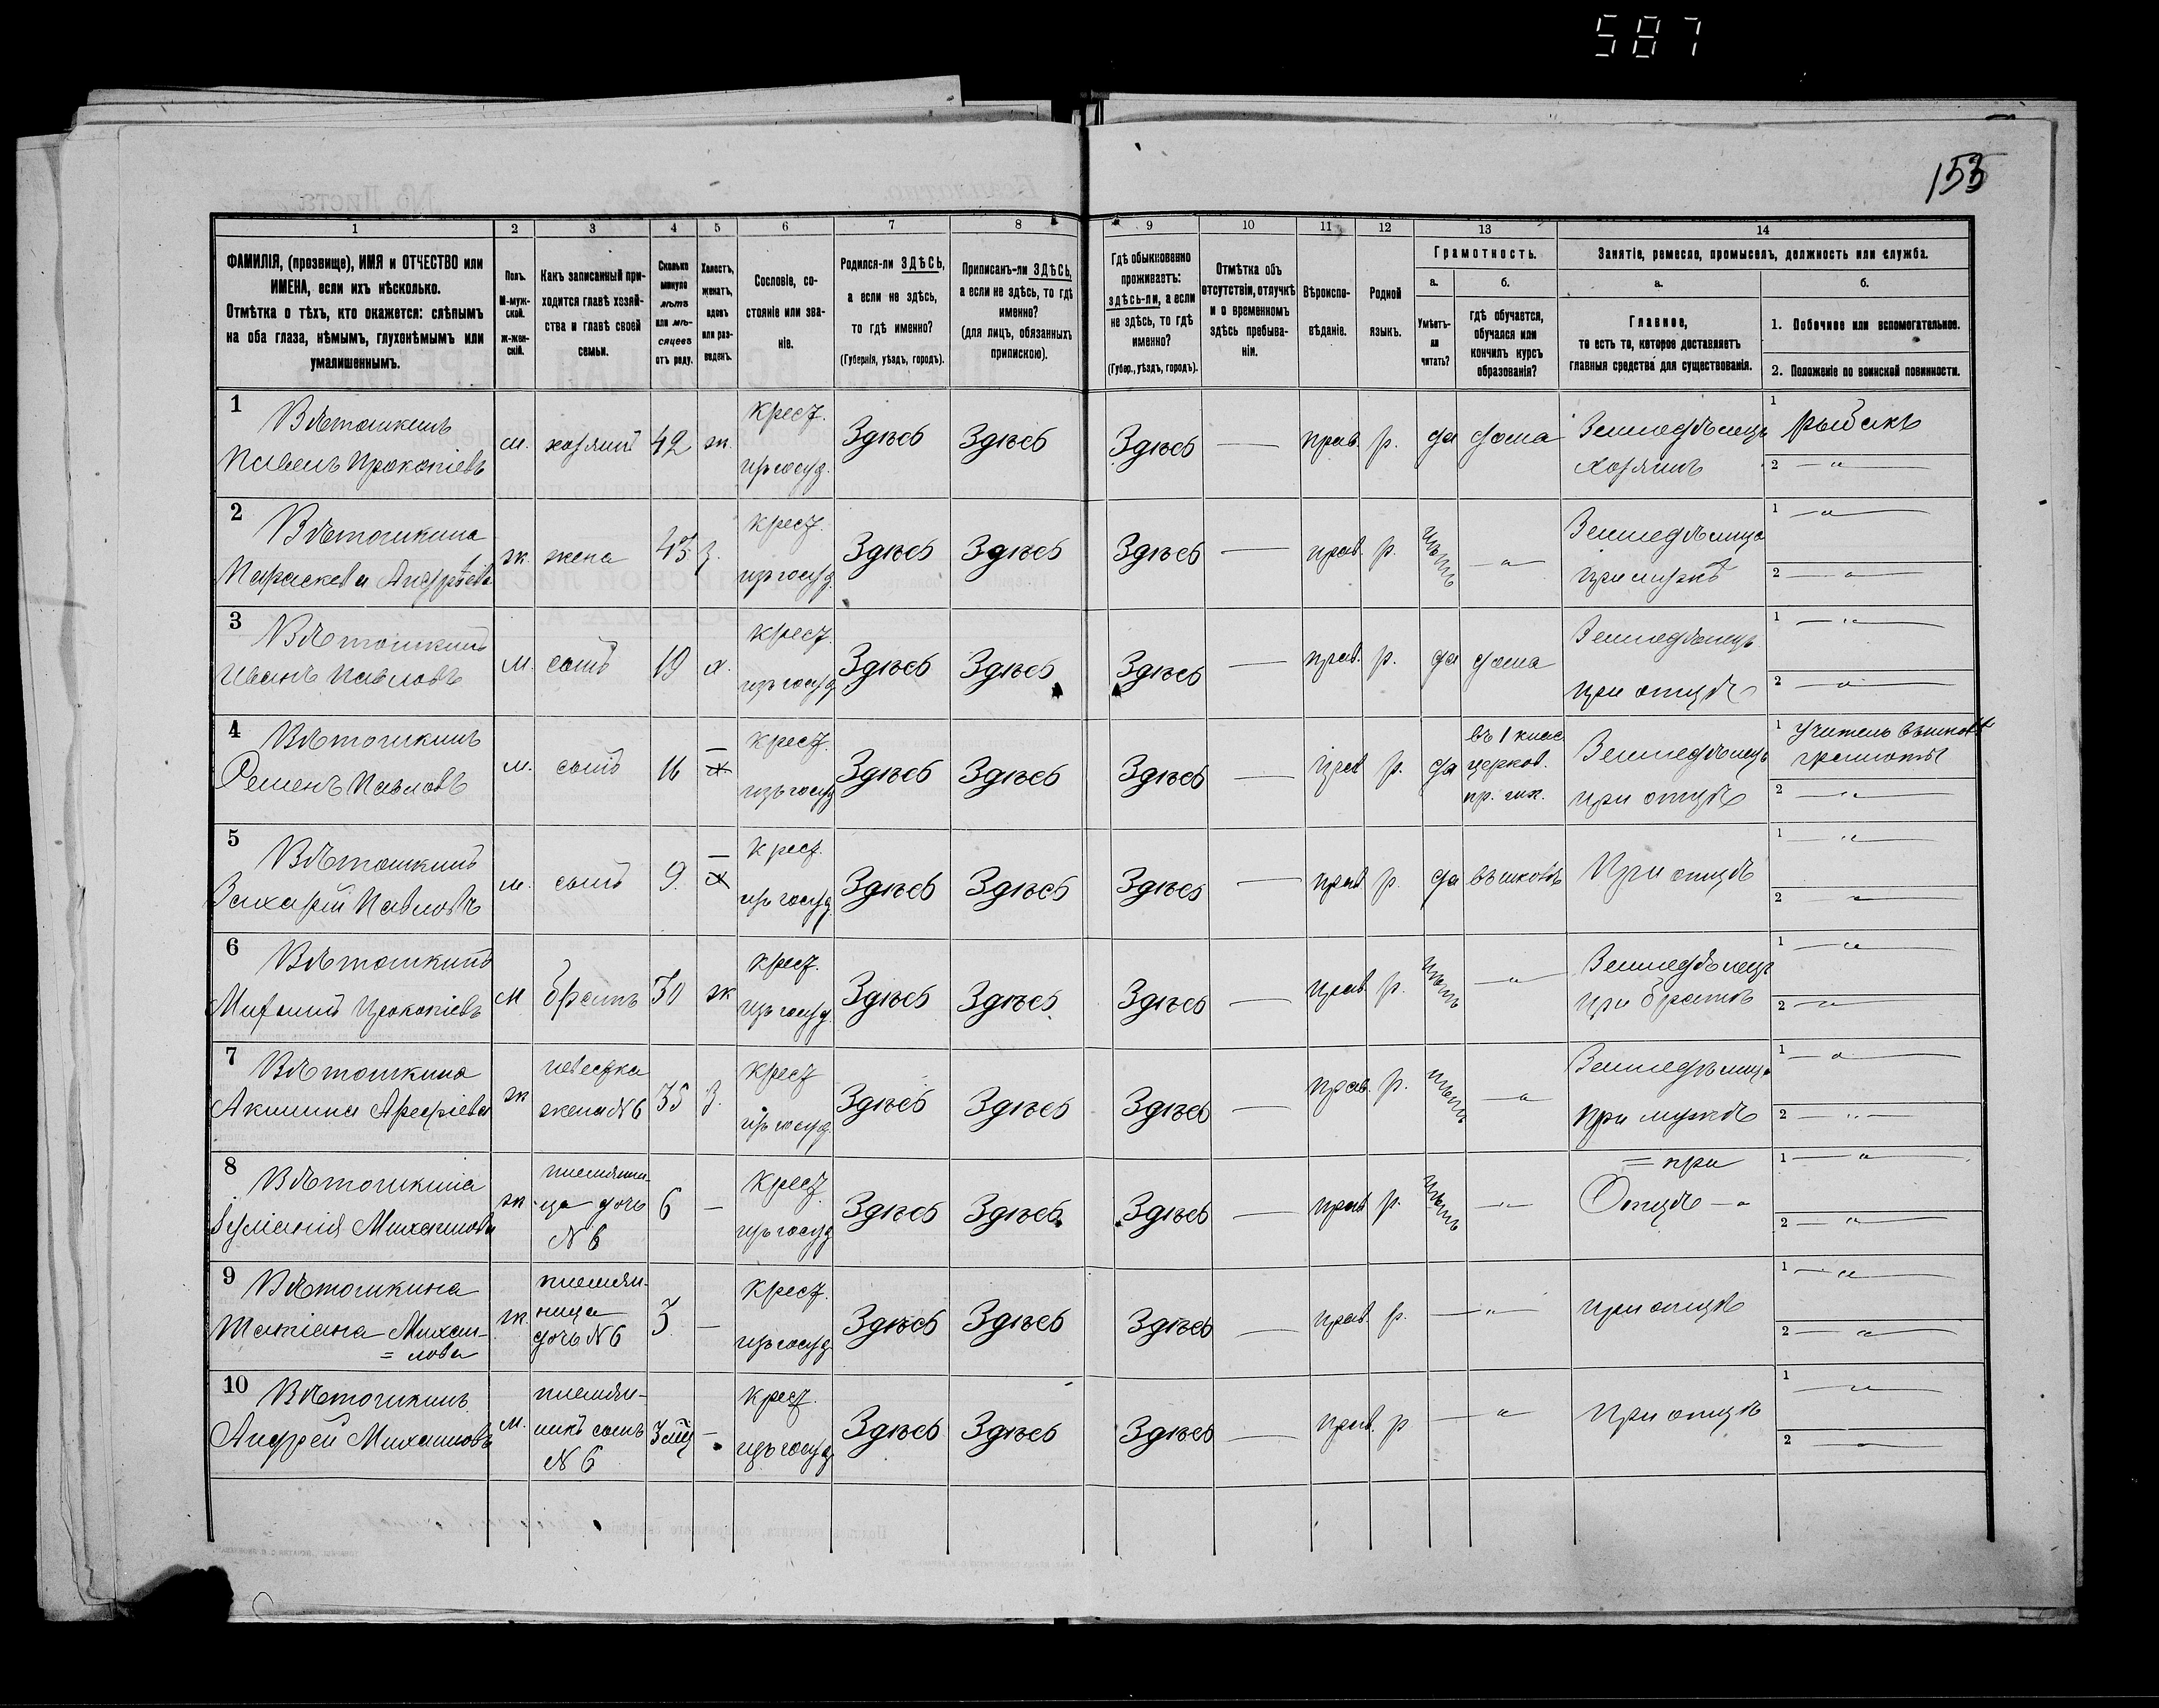 587
155
1 2 3 4 5 6 7 8 9 10 11 12 13 14
ФАМИЛІЯ, (прозвище), ИМЯ и ОТЧЕСТВО или
ИМЕНА, если ихъ нѣсколько.
Отмѣтка о тѣхъ, кто окажется: слѣпымъ
на оба глаза, нѣмымъ, глухонѣмымъ или
умалишеннымъ.
Полъ.
М-муж-
ской.
Ж-жен-
скій.
Какъ записанный при-
ходится главѣ хозяй-
ства и главѣ своей
семьи.
Сколько
минуло
лѣтъ
или мѣ-
сяцевъ
отъ роду.
Холостъ,
женатъ,
вдовъ
или раз-
веденъ.
Сословіе, со-
стояніе или зва-
ніе.
Родился-ли ЗДѢСЬ,
а если не здѣсь,
то гдѣ именно?
(Губернія, уѣздъ, городъ).
Приписанъ-ли ЗДѢСЬ,
а если не здѣсь, то гдѣ
именно?
(для лицъ, обязанныхъ
припискою).
Гдѣ обыкновенно
проживаетъ:
здѣсь-ли, а если
не здѣсь, то гдѣ
именно?
(Губер., уѣздъ, городъ).
Отмѣтка объ
отсутствіи, отлучкѣ
и о временномъ
здѣсь пребыва-
ніи.
Вѣроиспо-
вѣданіе.
Родной
языкъ.
Грамотность.
а.
Умѣетъ-
ли
читать?
б.
гдѣ обучается,
обучался или
кончилъ курсъ
образованія?
Занятіе, ремесло, промыселъ, должность или служба.
а.
Главное,
то есть то, которое доставляетъ
главныя средства для существованія.
б.
1. Побочное или вспомогательное.
2. Положеніе по воинской повинности.
1 Вѣтошкинъ
Павелъ Прокопіевъ
м. хозяинъ 42 ж. Крест.
изъ госуд. Здѣсь Здѣсь Здѣсь — прав. р. да дома Земледѣлецъ
хозяинъ 1 рыбакъ
2 — " —
2 Вѣтошкина
Параскева Андрѣева
ж. жена 43 з. Крест.
изъ госуд. Здѣсь Здѣсь Здѣсь — прав. р. нѣтъ — " — Земледѣлица
при мужѣ 1 — " —
2 — " —
3 Вѣтошкинъ
Иванъ Павловъ
м. сынъ 19 х. Крест.
изъ госуд. Здѣсь Здѣсь Здѣсь — прав. р. да дома Земледѣлецъ
при отцѣ 1 — " —
2 — " —
4 Вѣтошкинъ
Семенъ Павловъ
м. сынъ 16 — х Крест.
изъ госуд. Здѣсь Здѣсь Здѣсь — прав р. да въ 1 клас.
церков.
пр. шк. Земледѣлецъ
при отцѣ 1 Учитель въ школѣ
грамоты
2 — " —
5 Вѣтошкинъ
Захарій Павловъ
м. сынъ 9. — х Крест.
изъ госуд. Здѣсь Здѣсь Здѣсь — прав р. да въ школѣ При отцѣ 1 — " —
2 — " —
6 Вѣтошкинъ
Прокопіевъ
м братъ 30 ж Крест.
изъ госуд. Здѣсь Здѣсь Здѣсь — прав. р. нѣтъ — " — Земледѣлецъ
при братѣ 1 — " —
2 — " —
7 Вѣтошкина
Акилина
ж невестка
жена N 6 35 з. Крест
изъ госуд. Здѣсь Здѣсь Здѣсь — прав. р. нѣтъ — " — Земледѣлица
при мужѣ 1 — " —
2 — " —
8 Вѣтошкина
Іуліанія Михаилова
ж племянни-
ца дочь
N 6 6 — Крест.
изъ госуд Здѣсь Здѣсь Здѣсь — прав р. нѣтъ — " — = при
Отцѣ — " 1 — " —
2 — " —
9 Вѣтошкина
Татіана Михаи-
= лова
ж. племян-
ница
дочь N 6 3 — Крест.
изъ госуд. Здѣсь Здѣсь Здѣсь — прав. р. — " — при отцѣ 1 — " —
2 — " —
10 Вѣтошкинъ
Андрей Михаиловъ
м. племян-
никъ сынъ
N 6 3 мц — Крест.
изъ госуд Здѣсь Здѣсь Здѣсь — прав. р — " при отцѣ 1 — " —
2 — " —